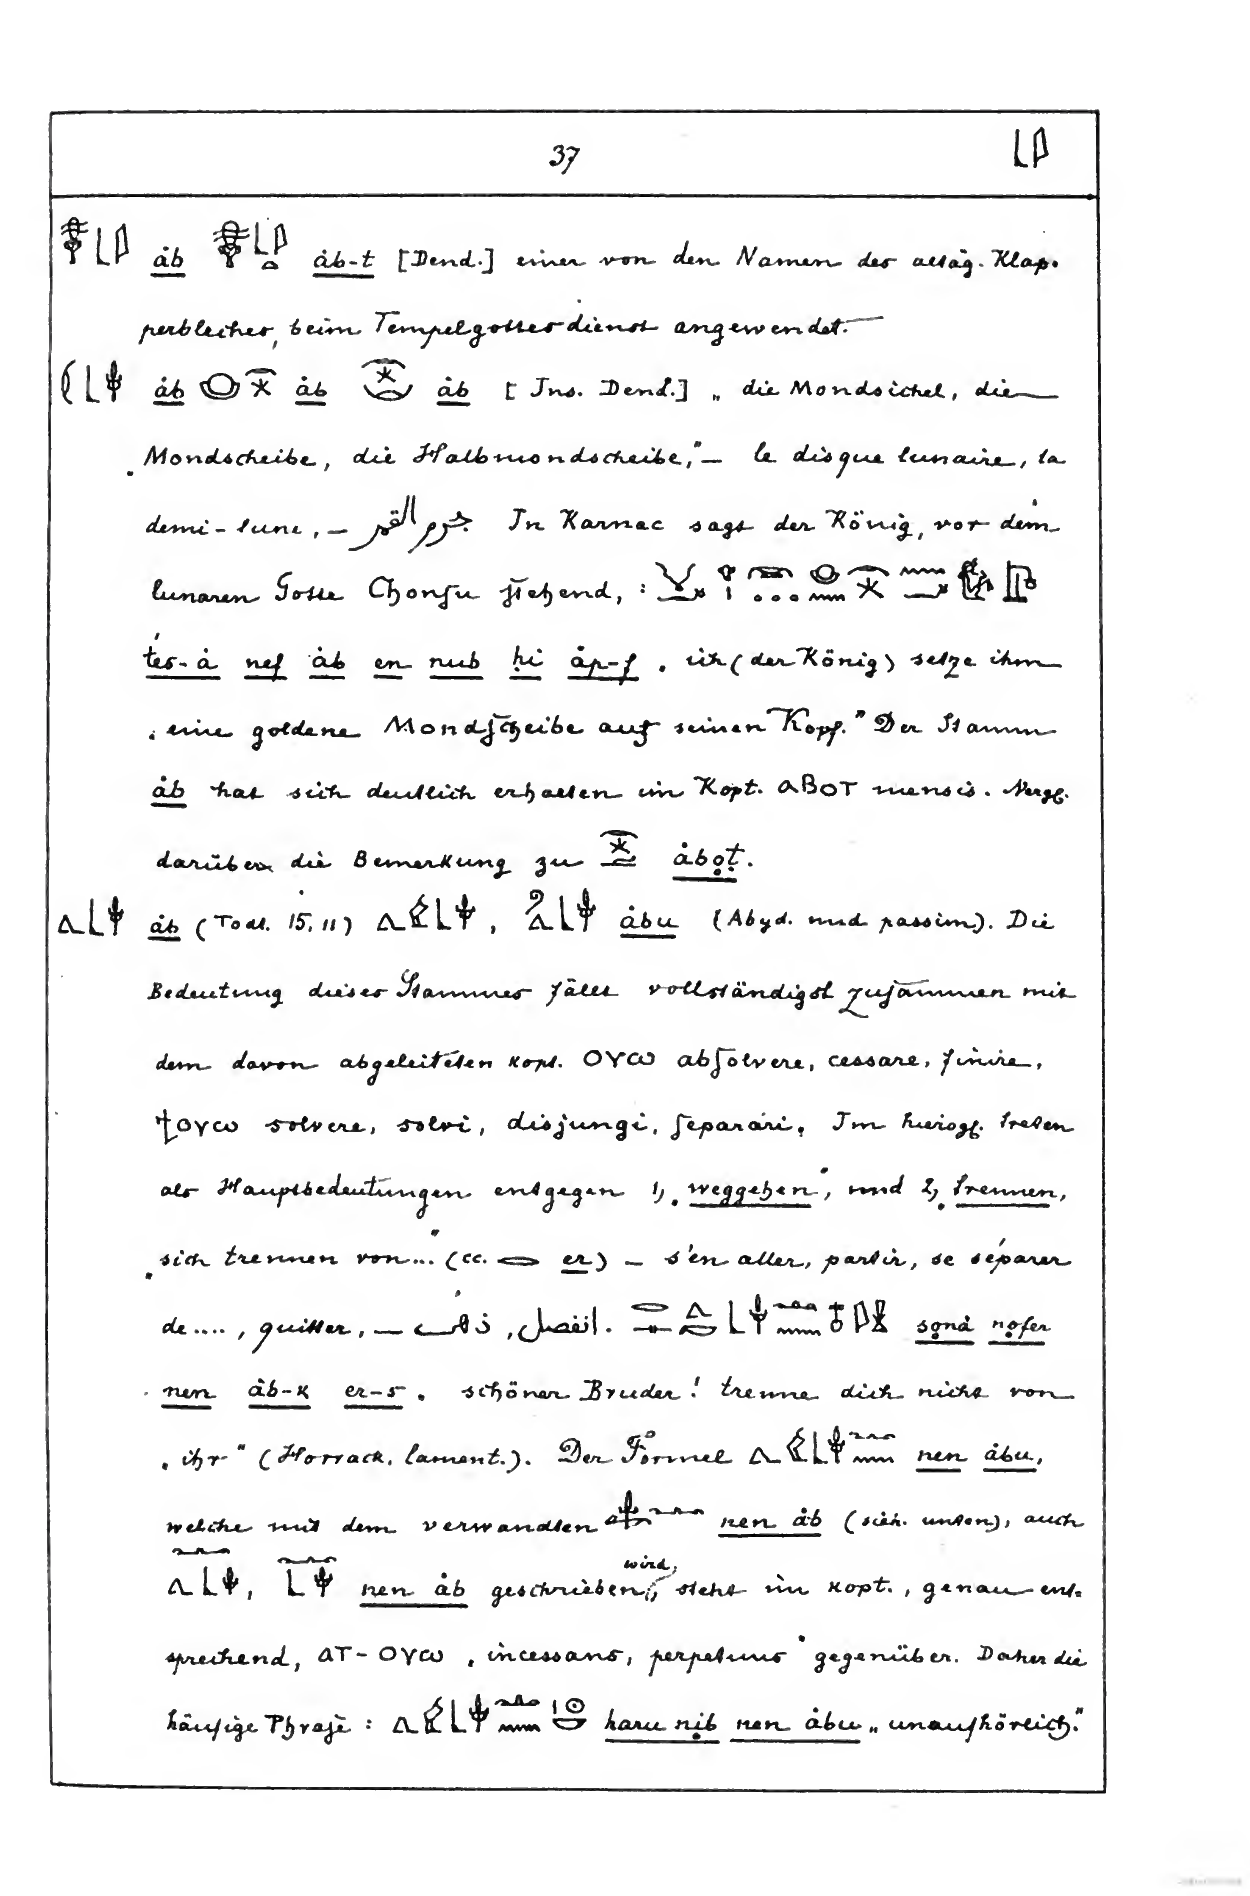 37
åb åb-t [Dend.] einer von den Namen des altäg. Klap-
perbleches, beim Tempelgottesdienst angewendet. —
åb åb åb [Ins. Dend.] „die Mondsichel, die
Mondscheibe, die Halbmondscheibe," — le disque lunaire, la
demi-lune, — جرم القمر In Karnac sagt der König, vor dem
lunaren Gotte Chonsu stehend, :
ṭes-å nef åb en nub ḥi åp-f „ich (der König) setze ihm
„eine goldene Mondscheibe auf seinen Kopf." Der Stamm
åb hat sich deutlich erhalten im Kopt. ⲁⲃⲟⲧ mensis. Vergl.
darüber die Bemerkung zu åbọṭ.
åb (Todt. 15, 11) , åbu (Abyd. und passim). Die
Bedeutung dieses Stammes fällt vollständigst zusammen mit
dem davon abgeleiteten kopt. ⲟⲩⲱ absolvere, cessare, finire,
ϯⲟⲩⲱ solvere, solvi, disjungi, separari. Im hierogl. treten
als Hauptbedeutungen entgegen 1, „weggehen", und 2, „trennen,
„sich trennen von..." (cc. er) — s'en aller, partir, se séparer
de...., quitter, — ذهب , انفصل. sọnå nọfer
nen åb-k er-s „schöner Bruder! trenne dich nicht von
„ihr" (Horrack, lament.). Der Formel nen åbu,
welche mit dem verwandten nen åb (sieh. unten), auch
, nen åb geschrieben wird, steht im kopt., genau ent-
sprechend, ⲁⲧ-ⲟⲩⲱ „incessans, perpetuus" gegenüber. Daher die
häufige Phrase : haru nịb nen åbu „unaufhörlich."